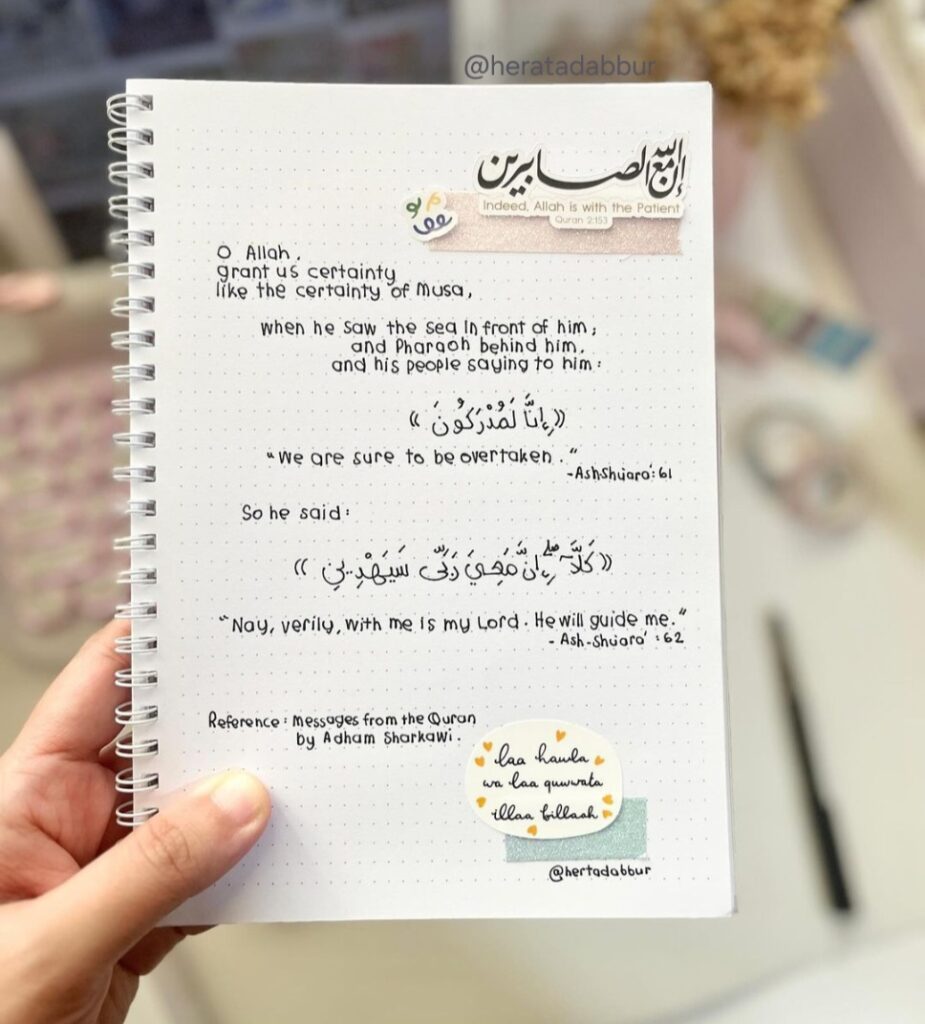 @heratadabbur
إن الله مع الصابرين
Indeed, Allah is with the Patient
Quran 2:153
O Allah,
grant us certainty
like the certainty of Musa,
when he saw the sea in front of him;
and Pharaoh behind him,
and his people saying to him:
«إِنَّا لَمُدْرَكُونَ»
"We are sure to be overtaken."
-AshShuaro': 61
So he said:
«كَلَّآ ۖ إِنَّ مَعِيَ رَبِّى سَيَهْدِينِ»
"Nay, verily, with me is my Lord. He will guide me."
- Ash-Shuaro' : 62
Reference: Messages from the Quran
by Adham Sharkawi.
laa hawla
wa laa quwwata
illaa billaah
@hertadabbur